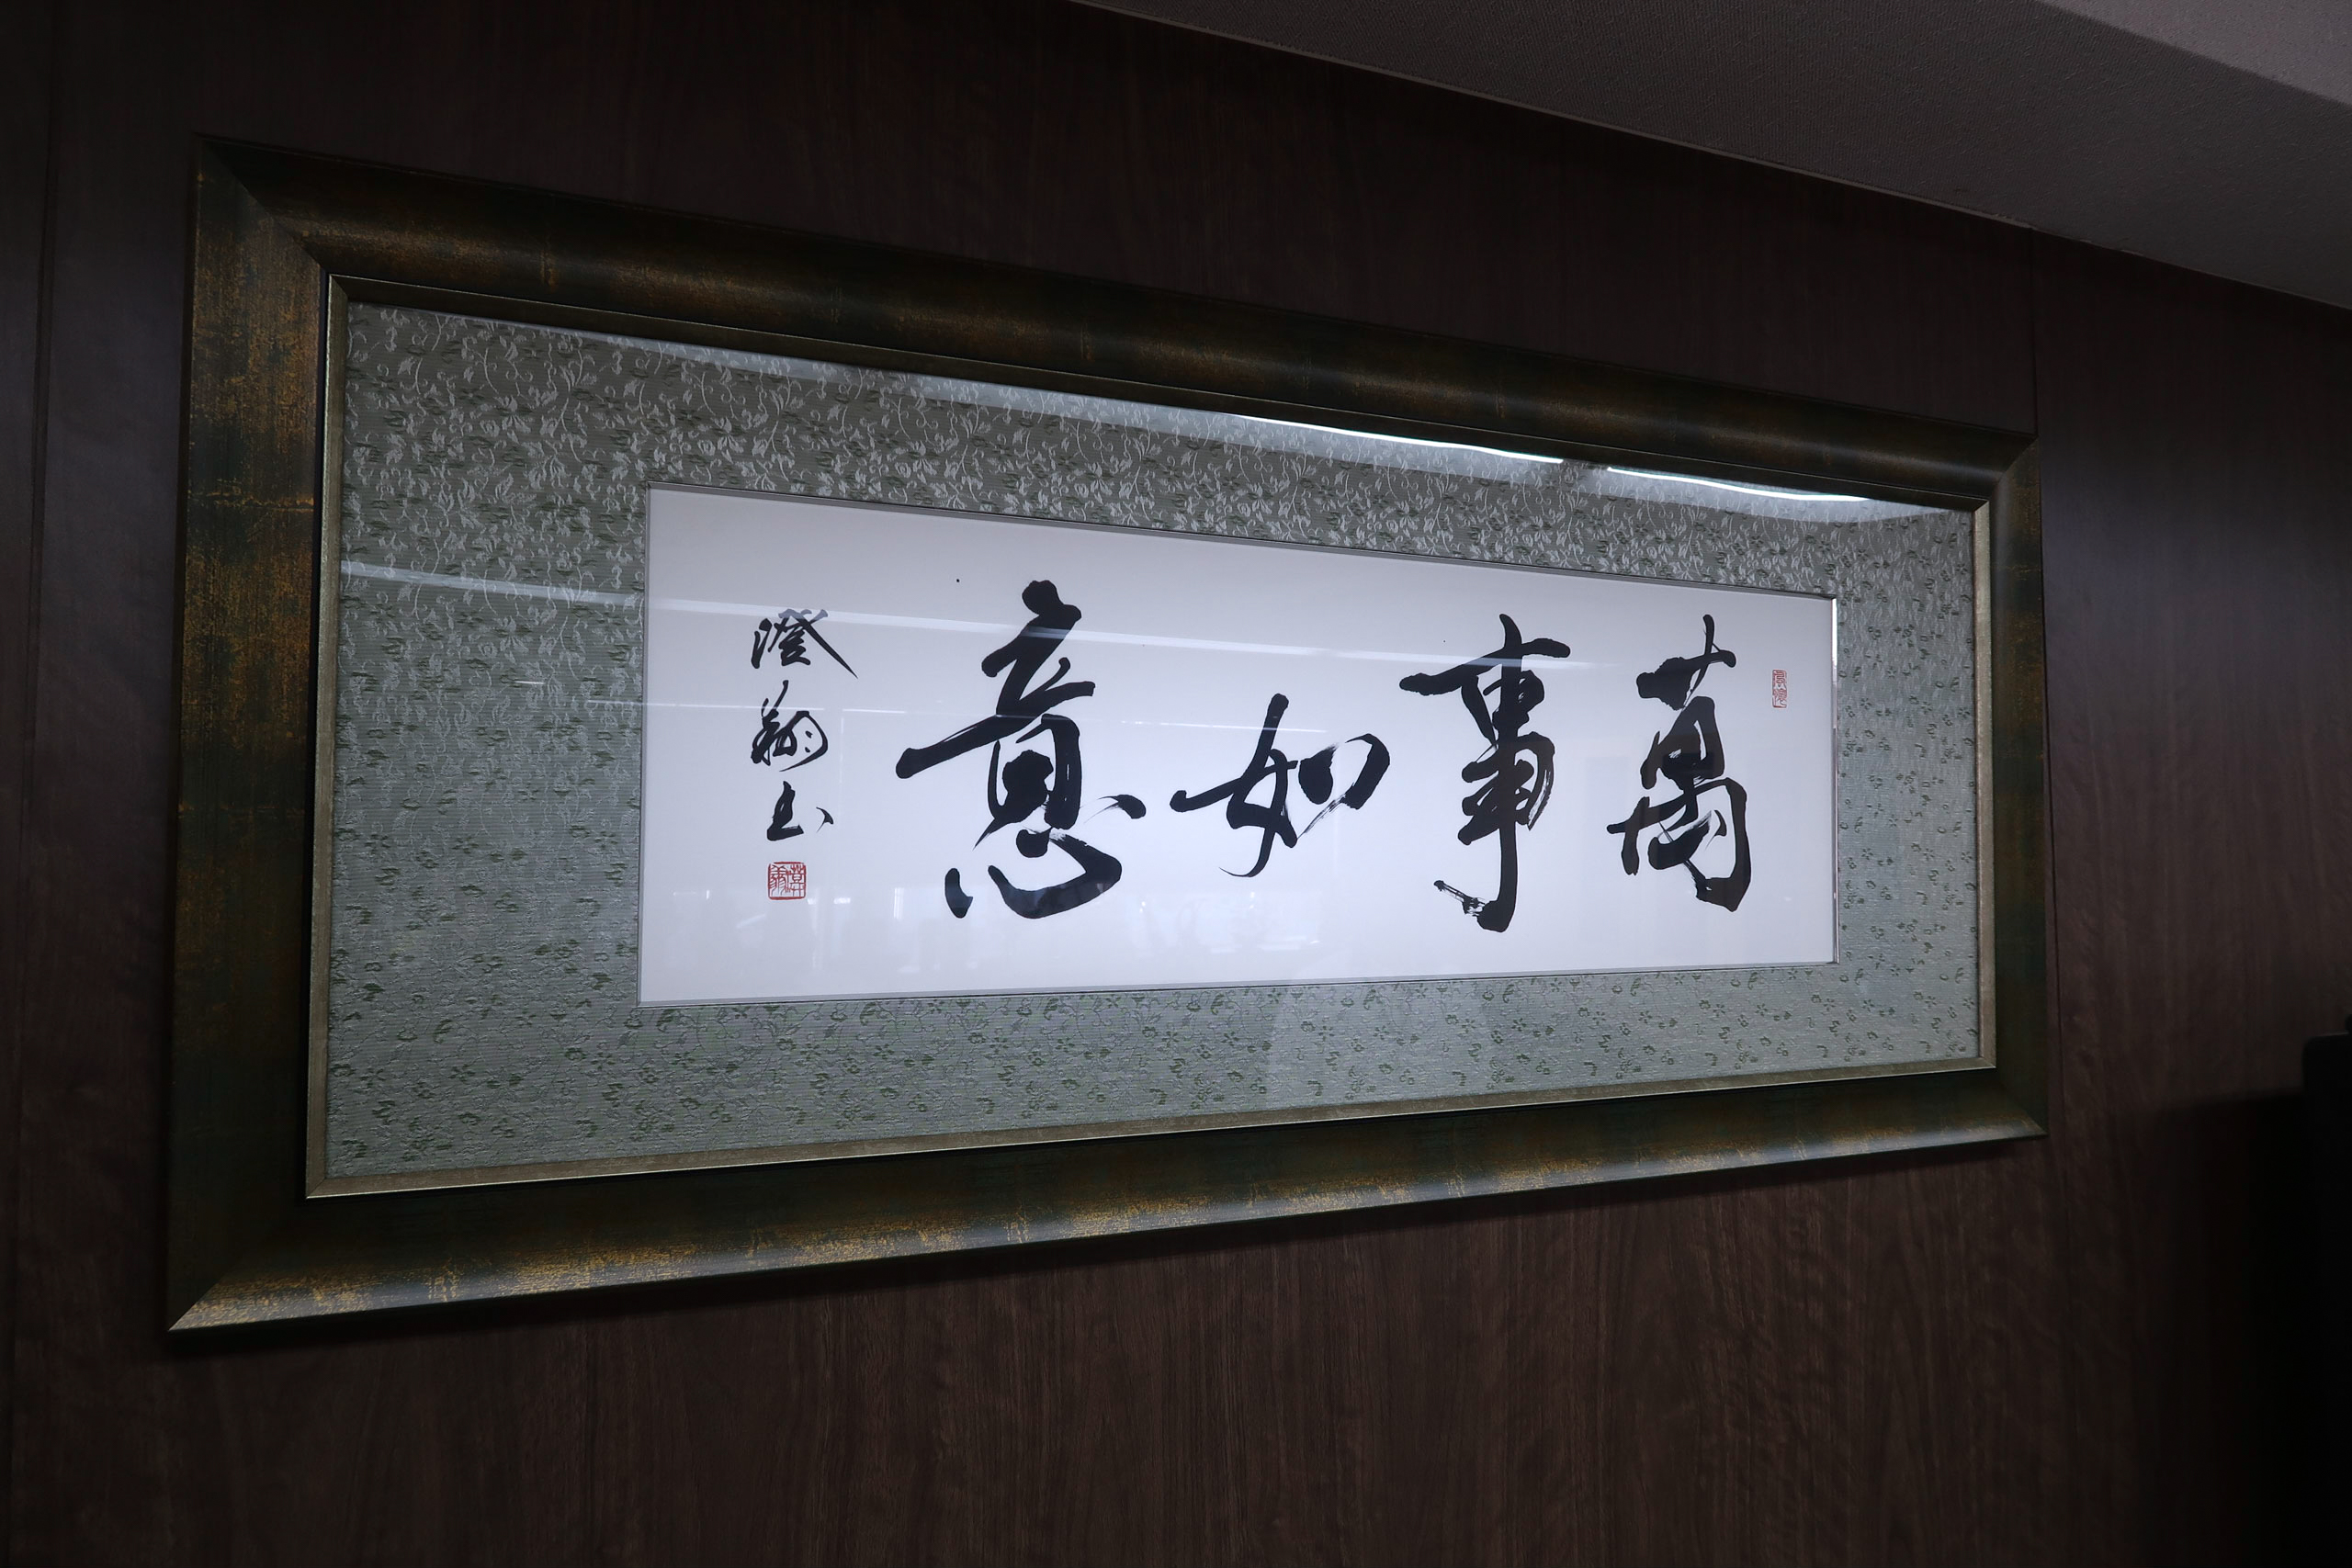 萬事如意
澄翔書